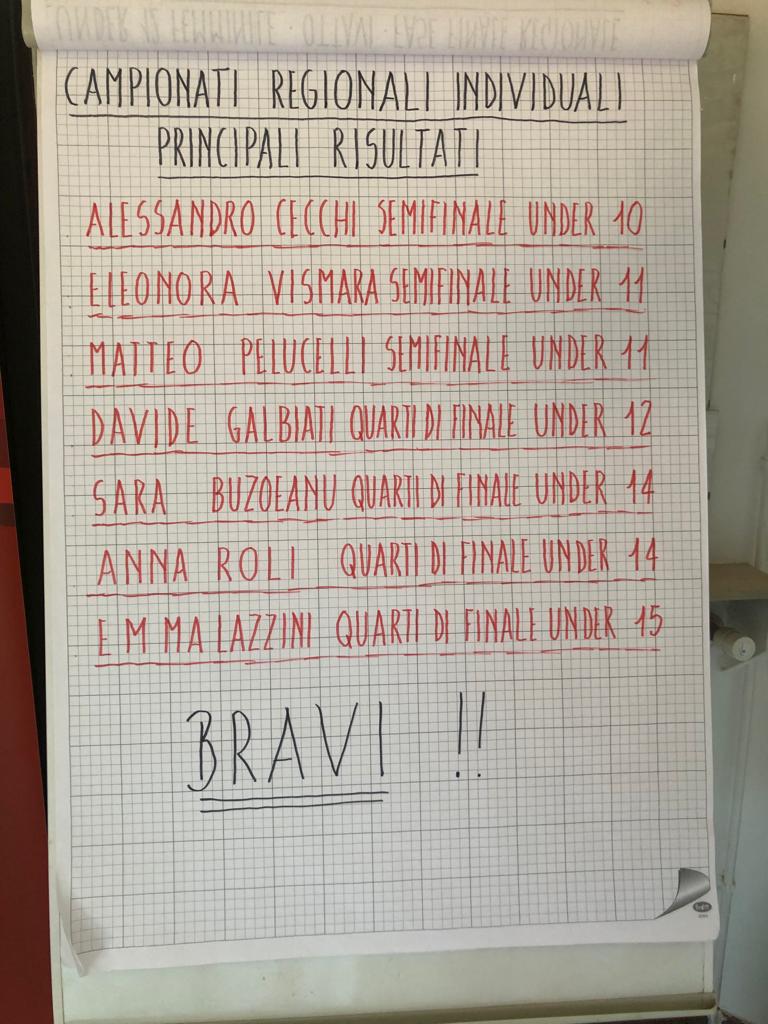 CAMPIONATI REGIONALI INDIVIDUALI
PRINCIPALI RISULTATI
ALESSANDRO CECCHI SEMIFINALE UNDER 10
ELEONORA VISMARA SEMIFINALE UNDER 11
MATTEO PELUCELLI SEMIFINALE UNDER 11
DAVIDE GALBIATI QUARTI DI FINALE UNDER 12
SARA BUZOEANU QUARTI DI FINALE UNDER 14
ANNA ROLI QUARTI DI FINALE UNDER 14
EMMA LAZZINI QUARTI DI FINALE UNDER 15
BRAVI !!